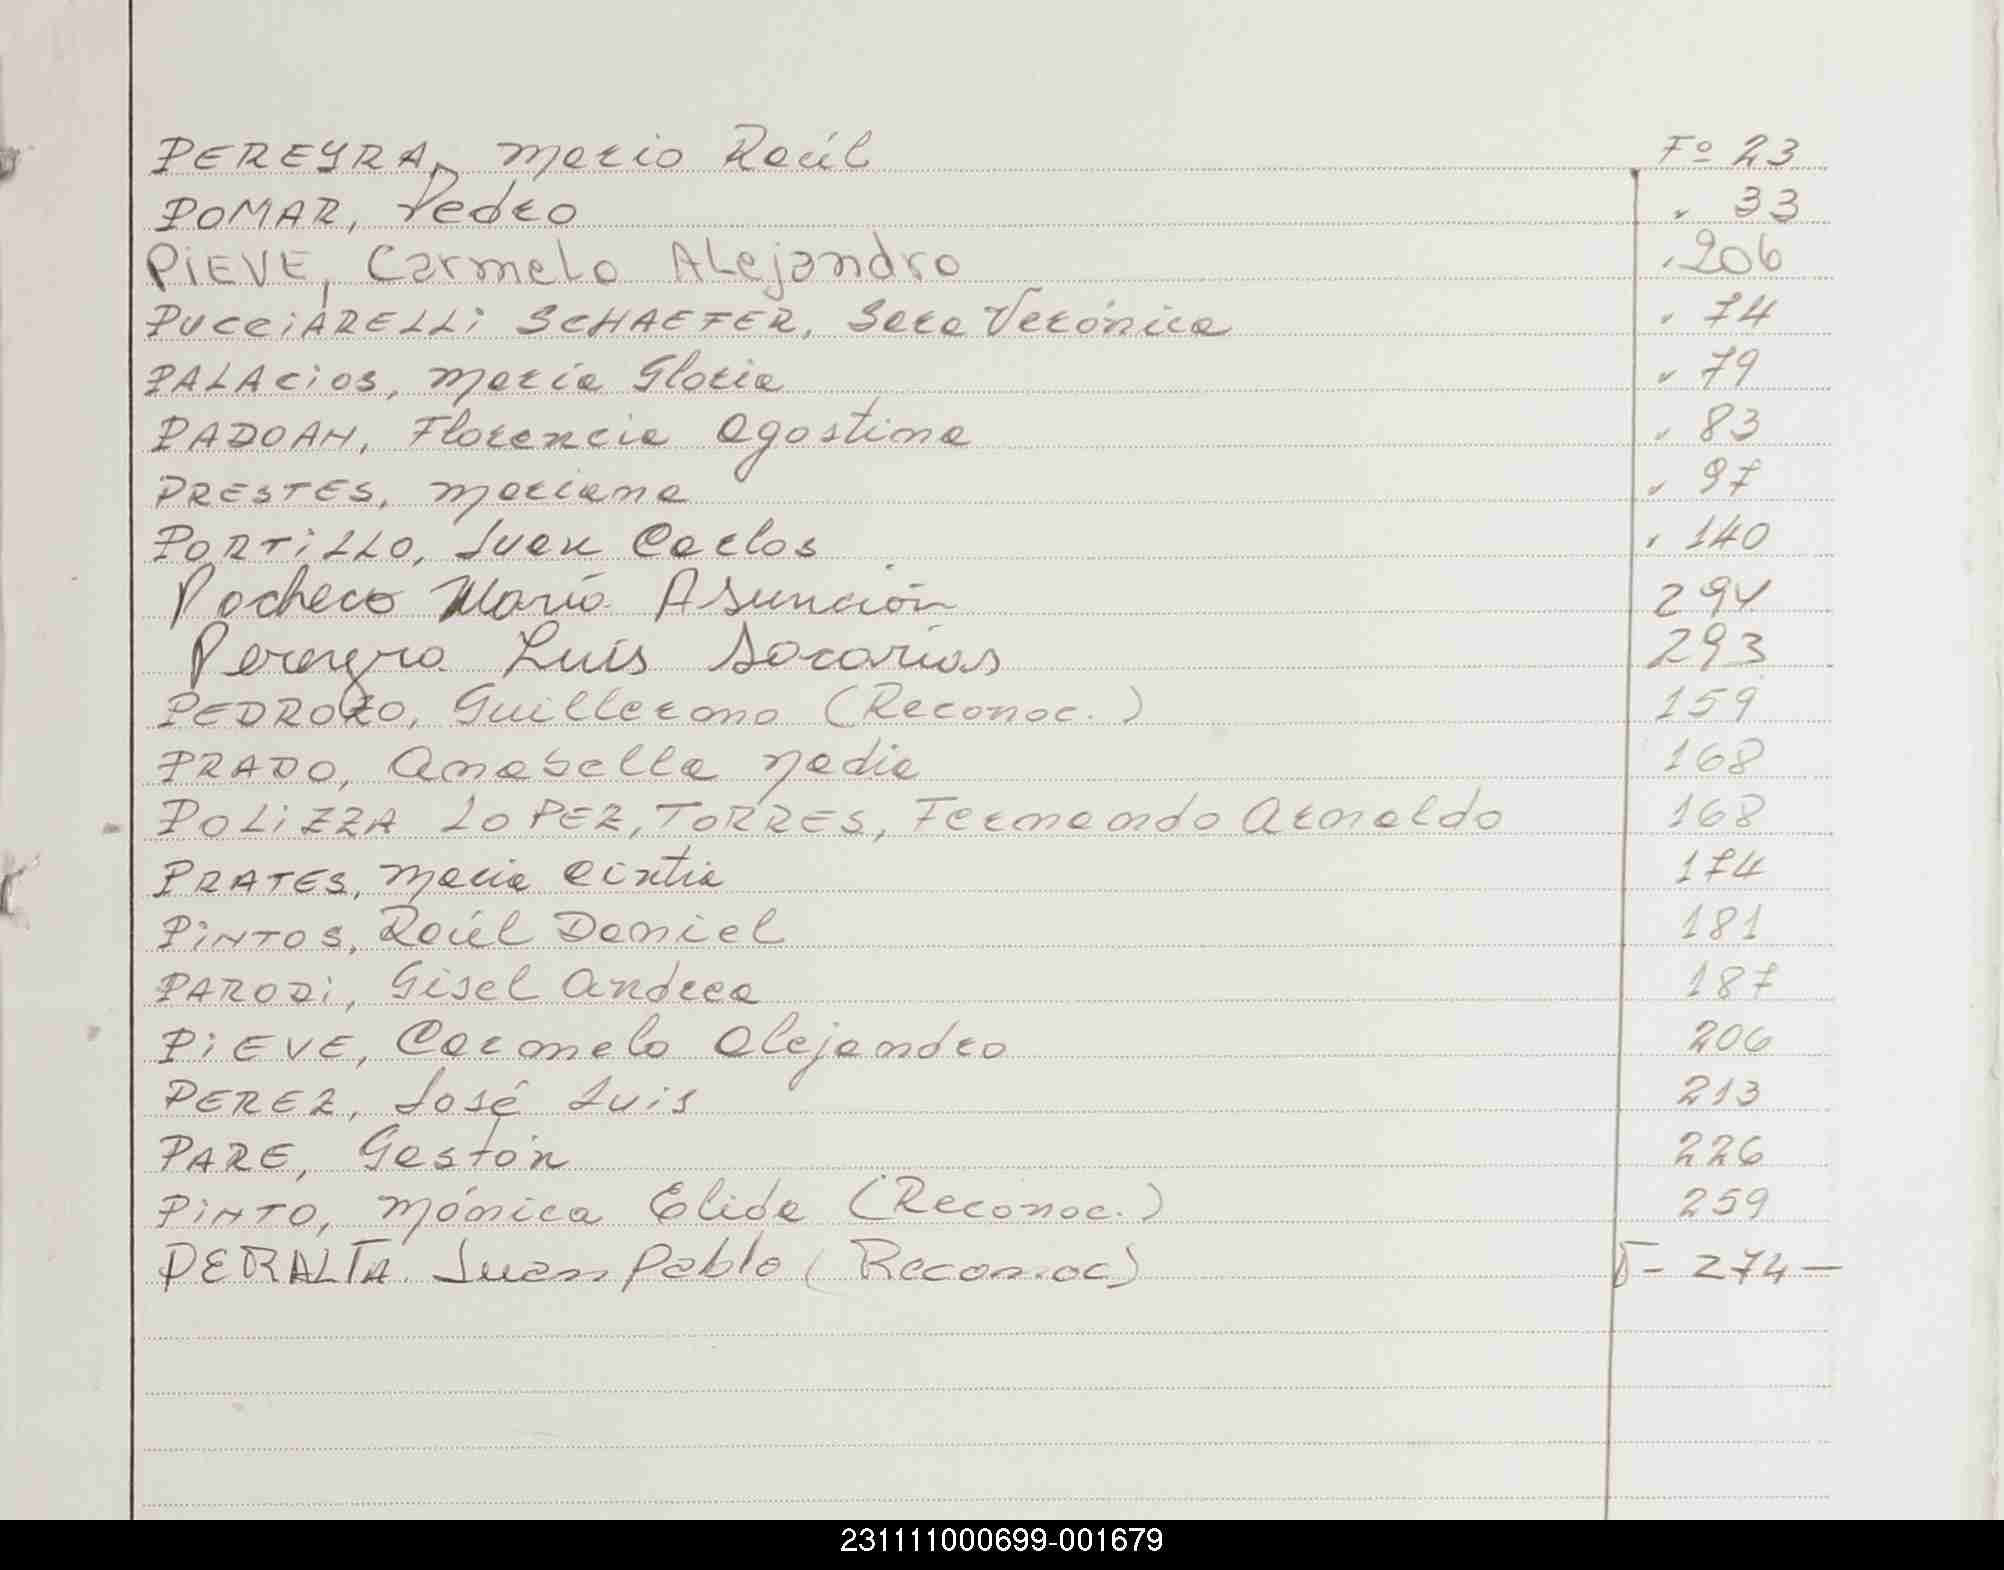 PEREYRA, Mario Raúl Fº 23
POMAR, Pedro " 33
PIEVE, Carmelo Alejandro " 206
PUCCIARELLI SCHAEFER, Sara Verónica " 74
PALACIOS, María Gloria " 79
PADOAN, Florencia Agostina " 83
PRESTES, Mariana " 97
PORTILLO, Juan Carlos " 140
Pacheco María Asunción 294
Pereyra Luís Socarias 293
PEDROZO, Guillermo (Reconoc.) 159
PRADO, Anabella Nadia 168
POLIZZA LOPEZ, TORRES, Fernando Arnaldo 168
PRATES, Maria Cintia 174
PINTOS, Raúl Daniel 181
PARODI, Gisel Andrea 187
PIEVE, Carmelo Alejandro 206
PEREZ, José Luis 213
PARE, Gastón 226
PINTO, Mónica Elida (Reconoc.) 259
PERALTA Juan Pablo (Reconoc) F- 274 —
231111000699-001679